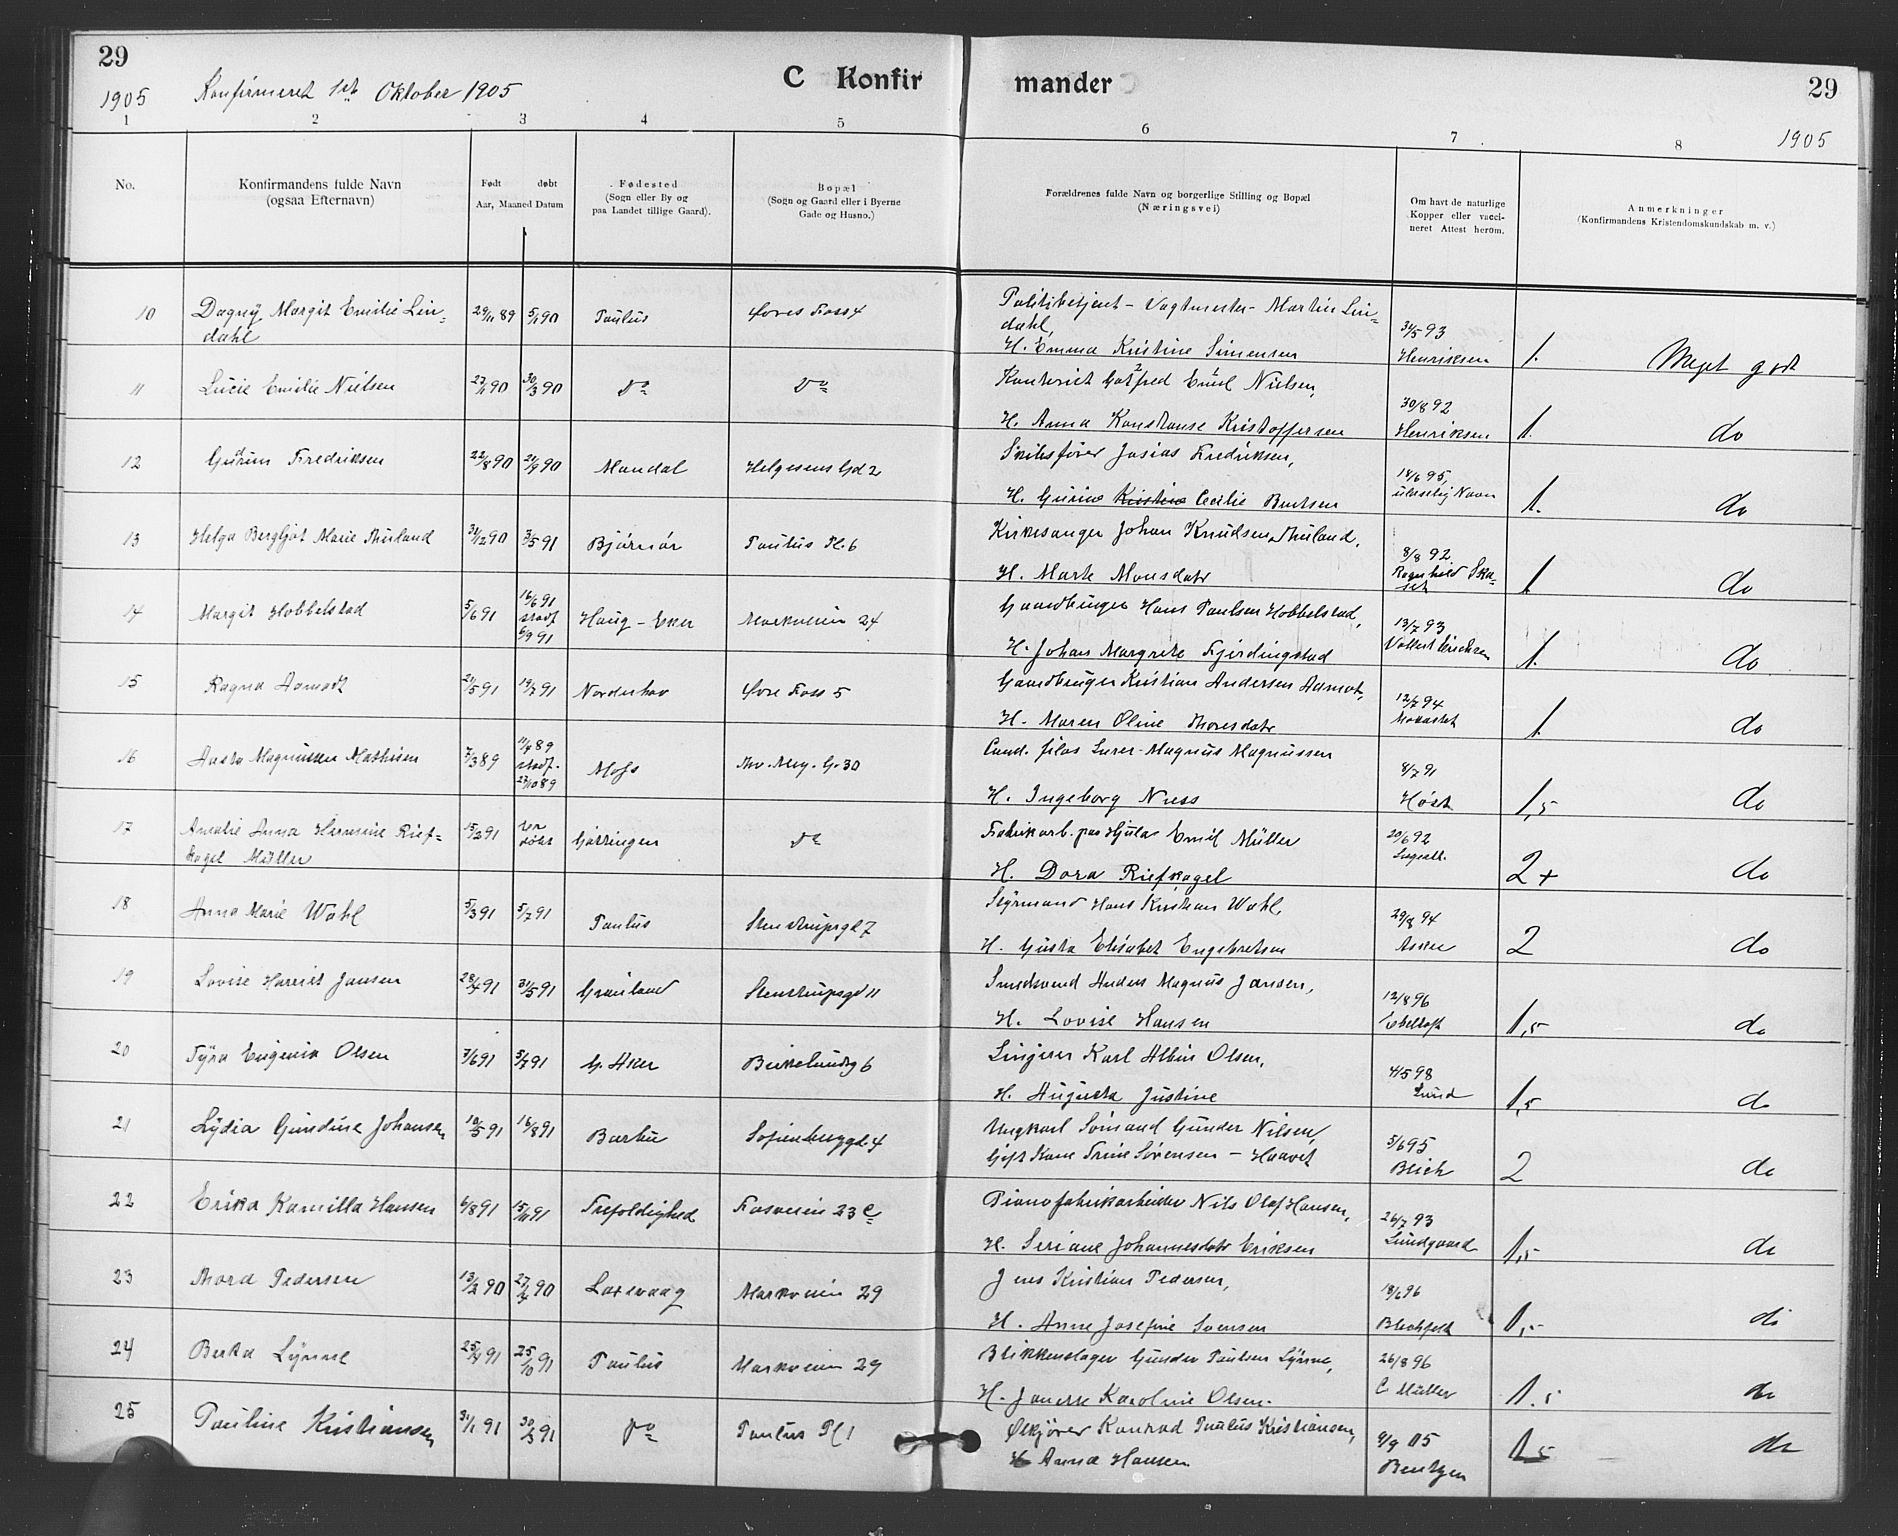 29
C Konfirmander
29
1905 Konfirmeret 1ste Oktober 1905
1905
1 2 3 4 5 6 7 8
No.
Konfirmandens fulde Navn
(ogsaa Efternavn)
Født døbt
Aar, Maaned Datum
Fødested
(Sogn eller By og
paa Landet tillige Gaard).
Bopæl
(Sogn og Gaard eller i Byerne
Gade og Husno.)
Forældrenes fulde Navn og borgerlige Stilling og Bopæl
(Næringsvei)
Om havt de naturlige
Kopper eller vacci-
neret Attest herom.
Anmerkninger
(Konfirmandens Kristendomskundskab m. v.)
10 Dagny Margit Emilie Lin= 29/11 89 5/1 90 Paulus Øvre Foss 4 Politibetjent - Vagtmester - Martin Lin=
dahl dahl, 31/5 93
H. Emma Kristine Simensen Henriksen 1. Meget godt
11 Lucie Emilie Nielsen 27/1 90 30/3 90 do do Kontorist Gotfred Emil Nielsen, 30/8 92
H. Anna Konstanse Kristoffersen Henriksen 1. do
12 Gudrun Fredriksen 22/8 90 21/9 90 Mandal Helgesens Gd 2 Skibsfører Josias Fredriksen, 14/6 95,
H. Gurine Cecilie Berntsen ulæselig Navn 1. do
13 Helga Bergljot Marie Thuland 31/12 90 3/5 91 Bjørnør Paulus Pl. 6 Kirkesanger Johan Knudsen Thuland, 8/8 92
H. Marte Monsdatr Ragnhild Ska=
set 1 do
14 Margit Hobbelstad 5/6 91 16/6 91
stadf
6/9 91 Haug - Eker Markveien 24 Gaardbruger Hans Paulsen Hobbelstad, 13/7 93
H. Johan Margrete Fjerdingstad 1. do
15 Ragna Aamodt 21/5 91 19/7 91 Norderhov Øvre Foss 5 Gaardbruger Kristian Andersen Aamot, 12/7 94
H. Maren Oline Thoresdatr 1. do
16 Aasta Magnussen Mathisen 7/3 89 11/4 89
stadf.
27/10 89 Moss Thv. Mey. G. 30 Cand. filos Lærer Magnus Magnussen 8/7 91
H. Ingeborg Næss Høst 1,5 do
17 Amalie Anna Hermine Rief= 15/2 91 Göttingen do Fabrikarb. paa Hjula Emil Müller 20/6 92
kogel Müller H. Dora Riefkogel 2+ do
18 Anna Marie Wahl 5/3 91 5/7 91 Paulus Stenstrupsgd 7 Styrmand Hans Kristian Wahl, 29/8 94
H. Gusta Elisabet Engebretsen Asken 2 do
19 Lovise Harriet Jansen 28/4 91 31/5 91 Grønland Stenstrupsgd 11 Smedsvend Anders Magnus Jansen, 12/8 96
H. Lovise Hansen Ebeltoft 1,5 do
20 Fyra Eugenia Olsen 7/6 91 5/7 91 G. Aker Birkelundsg 6 Linjerer Karl Albin Olsen, 4/5 98
H. Augusta Justine Lund 1,5 do
21 Lydia Gundine Johansen 10/5 91 16/8 91 Barbu Sofienberggd. 4 Ungkarl Sømand Gunder Nilsen, 5/6 95
Gift Kone Trine Sørensen - Haavet Blich 2 do
22 Erika Kamilla Hansen 6/8 91 15/11 91 Trefoldighed Fosveien 23 C Pianofabrikarbeider Nils Olaf Hansen, 26/7 93
H. Seriane Johannesdatr Eriksen Lundgaard 1,5 do
23 Thora Pedersen 13/2 90 27/4 90 Laxevaag Markveien 29 Jens Kristian Pedersen, 18/6 96
H. Anne Josefine Svensen Blichfeldt do
24 Berta Lynne 25/4 91 25/10 91 Paulus Markveien 29 Blikkenslager Gunder Paulsen Lynne, 26/8 96
H. Karoline Olsen. C. Müller 1.5 do
25 Pauline Kristiansen 31/1 91 30/3 91 do Paulus Pl 1 Ølkjører Konrad Paulus Kristiansen, 9/9 05
H Anna Hansen Bentzen 1,5 do